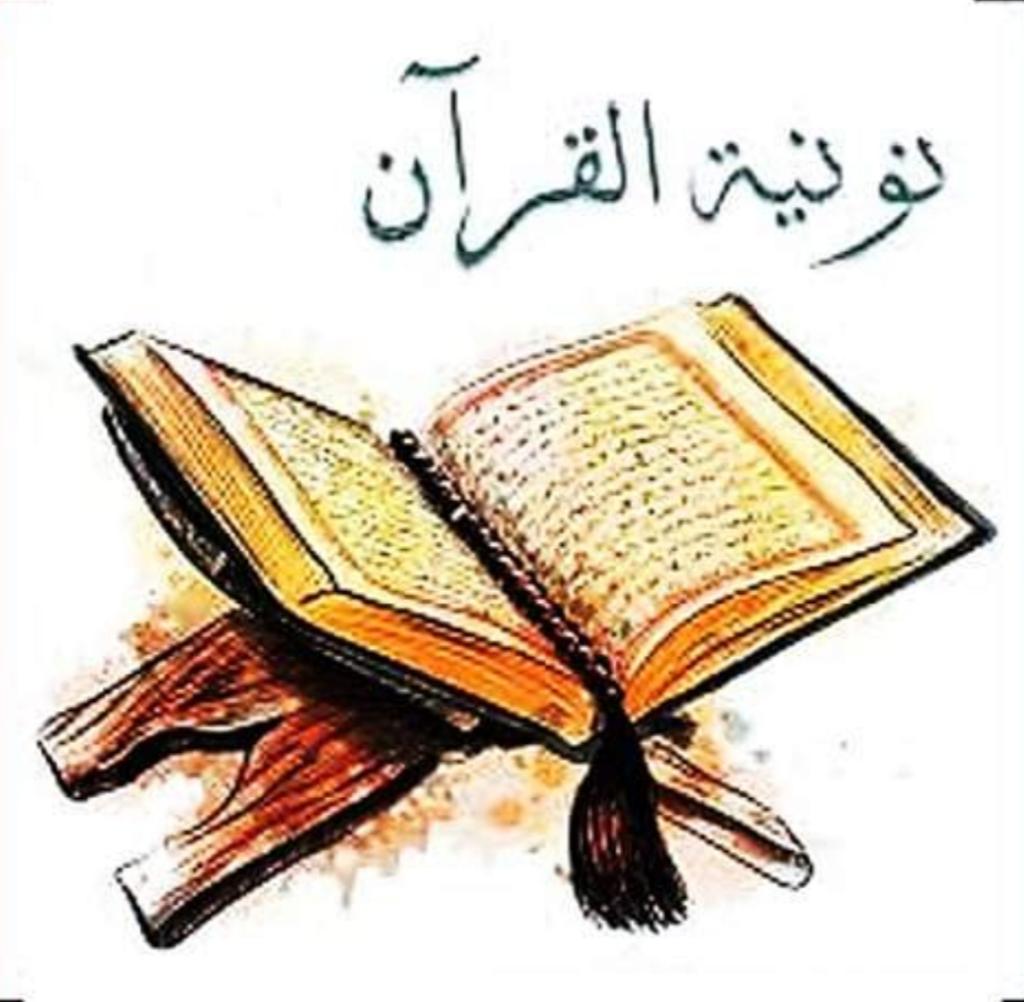 نونية القرآن